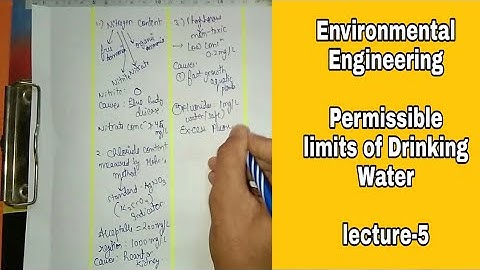 1) Nitrogen Content
free ammonia
organic ammonia
Nitrite
Nitrate
Nitrite: 0
Cause: Blue baby
disease
Nitrate conc > 45
mg/L
2. Chloride content
measured by Mohr's
method
standard - AgNO3
(K2CrO4)
Indicator
Acceptable = 200 mg/L
rejection: 1000 mg/L
Cause: Heart &
Kidney
3)
non-toxic
→ Low conc
0.2 mg/L
Cause:
① fast growth
aquatic
plants
Fluoride: 1 mg/L
water (safe)
Excess Fluor
Environmental
Engineering
Permissible
limits of Drinking
Water
lecture-5